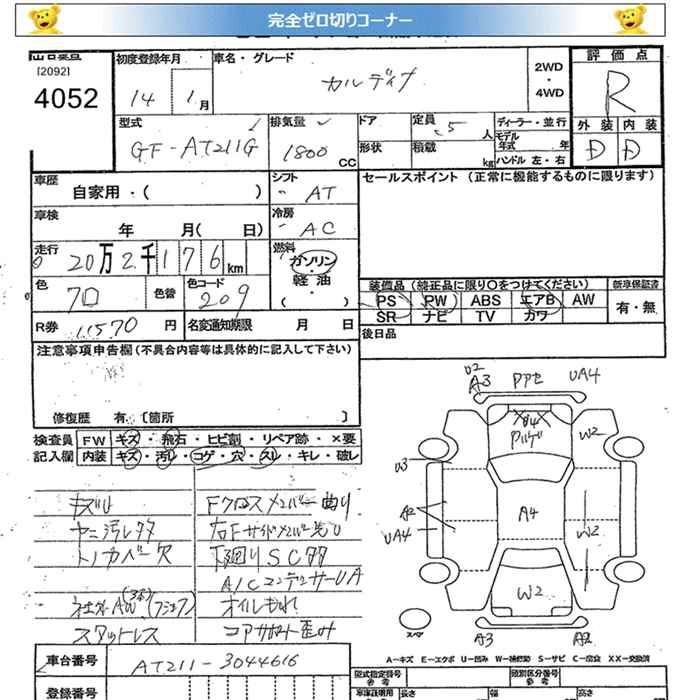 完全ゼロ切りコーナー
[2092]
4052
初度登録年月
14 1月
車名・グレード
カルディナ
2WD
・
4WD
評価点
R
外装 内装
D D
型式
GF-AT211G
排気量
1800 CC
ドア
形状
定員
5 人
積載
kg
ディーラー・並行
モデル年式 年
ハンドル 左・右
車歴
自家用・( )
シフト
AT
セールスポイント (正常に機能するものに限ります)
車検
年 月( 日)
冷房
AC
走行
20万2千176km
燃料
ガソリン・
軽油・
( )
色
色替
色コード
209
装備品 (純正品に限り○をつけてください) 新車保証書
PS PW ABS エアB AW
SR ナビ TV カワ
有・無
R券
11570 円
名変通知期限 月 日
後日品
注意事項申告欄(不具合内容等は具体的に記入して下さい)
修復歴 有 〔箇所 〕
検査員記入欄
FW キズ・飛石・ヒビ割・リペア跡・×要
内装 キズ・汚れ・コゲ・穴・スレ・キレ・破レ
キズU
ヤニ汚レ多々
トノカバー欠
スタットレス
Fクロスメンバー曲り
右Fサイドメンバー先U
下廻りSC多々
A/CコンデンサーUA
オイルもれ
コアサポート歪み
U2
A3
UA4
W2
U3
A2
UA4
A4
W2
W2
スペア
A3
A2
A−キズ E−エクボ U−凹み W−補修跡 S−サビ C−腐食 XX−交換済
車台番号
AT211-3044616
登録番号
型式指定番号
参考
類別区分番号
参考
長さ
幅
高さ